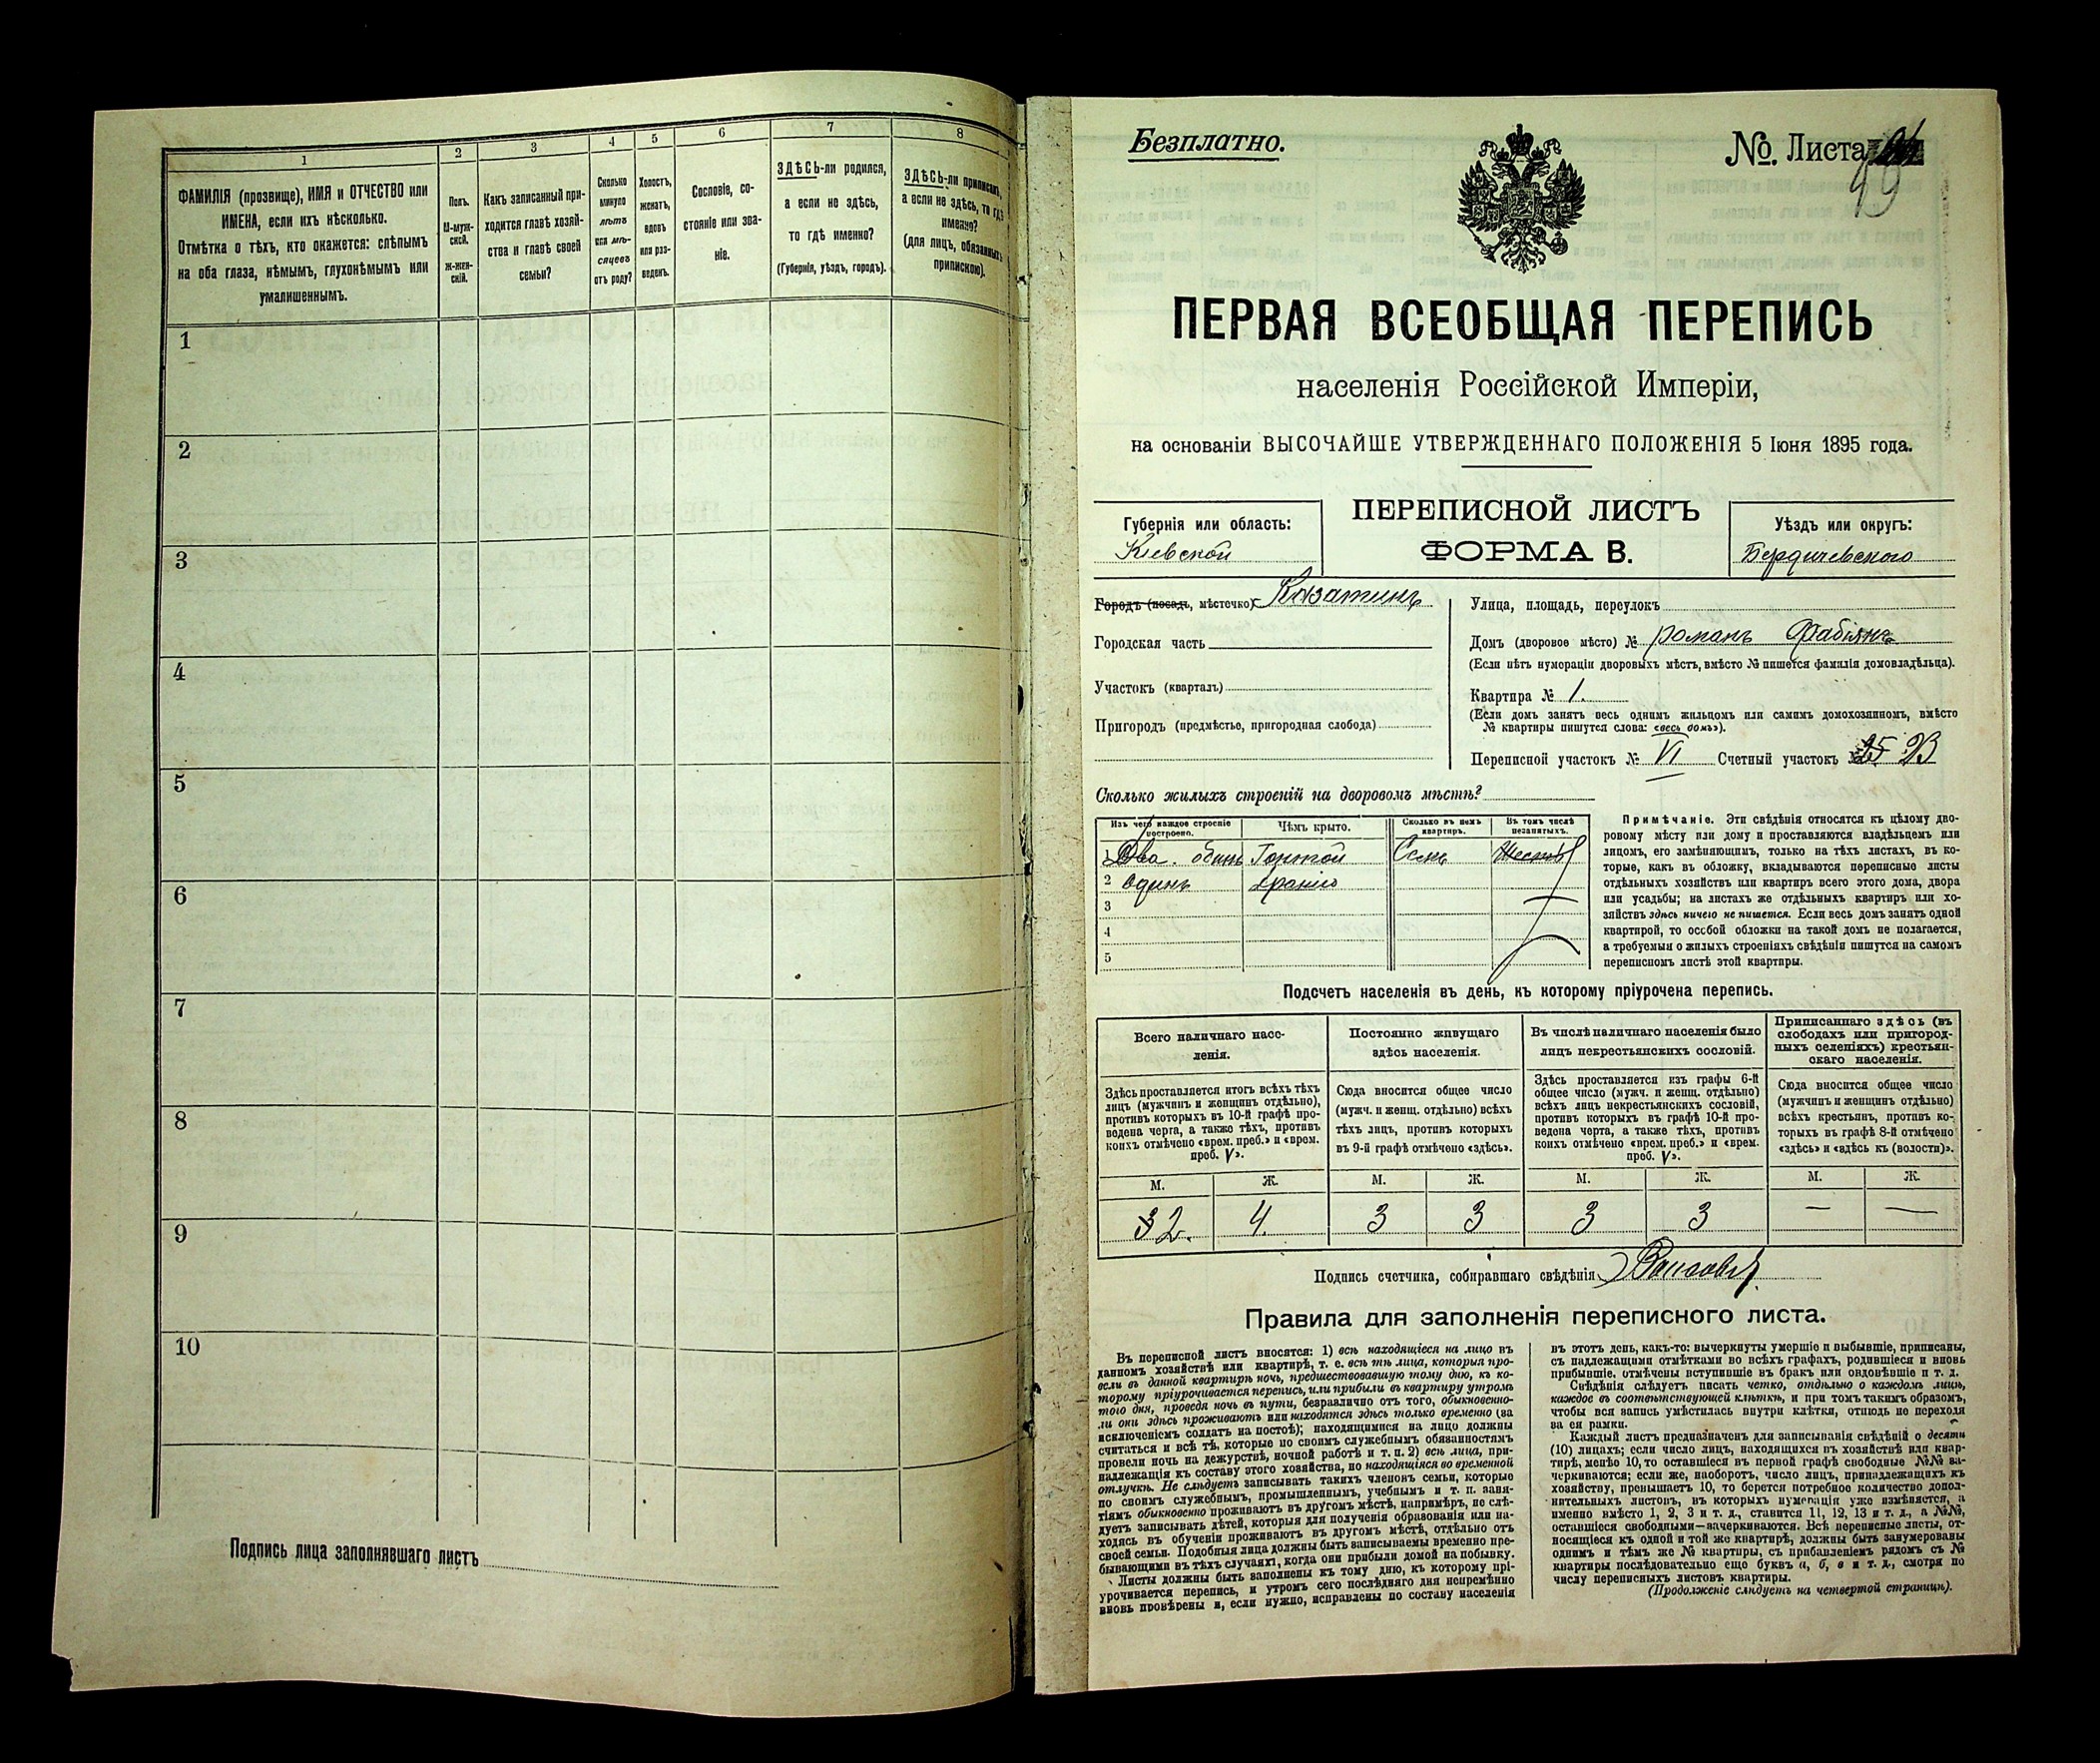 1
2
3
4
5
6
7
8
ФАМИЛІЯ (прозвище), ИМЯ и ОТЧЕСТВО или
ИМЕНА, если ихъ нѣсколько.
Отмѣтка о тѣхъ, кто окажется: слѣпымъ
на оба глаза, нѣмымъ, глухонѣмымъ или
умалишеннымъ.
Полъ.
М-муж-
ской.
Ж-жен-
скій.
Какъ записанный при-
ходится главѣ хозяй-
ства и главѣ своей
семьи?
Сколько
минуло
лѣтъ
или мѣ-
сяцевъ
отъ роду?
Холостъ,
женатъ,
вдовъ
или раз-
веденъ.
Сословіе, со-
стояніе или зва-
ніе.
ЗДѢСЬ-ли родился,
а если не здѣсь,
то гдѣ именно?
(Губернія, уѣздъ, городъ).
ЗДѢСЬ-ли приписанъ,
а если не здѣсь, то гдѣ
именно?
(для лицъ, обязанныхъ
припискою).
1
2
3
4
5
6
7
8
9
10
Подпись лица заполнявшаго листъ
Безплатно.
№. Листа
49
ПЕРВАЯ ВСЕОБЩАЯ ПЕРЕПИСЬ
населенія Россійской Имперіи,
на основаніи ВЫСОЧАЙШЕ УТВЕРЖДЕННАГО ПОЛОЖЕНІЯ 5 Іюня 1895 года.
Губернія или область:
Кіевской
ПЕРЕПИСНОЙ ЛИСТЪ
ФОРМА В.
Уѣздъ или округъ:
Бердичевского
Городъ (посадъ, мѣстечко): Казатинъ
Городская часть
Участокъ (кварталъ)
Пригородъ (предмѣстье, пригородная слобода)
Улица, площадь, переулокъ
Домъ (дворовое мѣсто) № Романъ Фабіянъ
(Если нѣтъ нумораціи дворовыхъ мѣстъ, вмѣсто № пишется фамилія домовладѣльца).
Квартира № 1.
(Если домъ занятъ весь однимъ жильцомъ или самимъ домохозяиномъ, вмѣсто
№ квартиры пишутся слова: «весь домъ»).
Переписной участокъ № VI Счетный участокъ № 25 23
Сколько жилыхъ строеній на дворовомъ мѣстѣ?
Изъ чего каждое строеніе
построено.
Чѣмъ крыто.
Сколько въ немъ
квартиръ.
Въ томъ числѣ
незанятыхъ.
1 Два Гонтой Семь
2 Одинъ Дранію
3
4
5
Примѣчаніе. Эти свѣдѣнія относятся къ цѣлому дво-
ровому мѣсту или дому и проставляются владѣльцемъ или
лицомъ, его замѣняющимъ, только на тѣхъ листахъ, въ ко-
торые, какъ въ обложку, вкладываются переписные листы
отдѣльныхъ хозяйствъ или квартиръ всего этого дома, двора
или усадьбы; на листахъ же отдѣльныхъ квартиръ или хо-
зяйствъ здѣсь ничего не пишется. Если весь домъ занятъ одной
квартирой, то особой обложки на такой домъ не полагается,
а требуемыя о жилыхъ строеніяхъ свѣдѣнія пишутся на самомъ
переписномъ листѣ этой квартиры.
Подсчетъ населенія въ день, къ которому пріурочена перепись.
Всего наличнаго насе-
ленія.
Постоянно живущаго
здѣсь населенія.
Въ числѣ наличнаго населенія было
лицъ некрестьянскихъ сословій.
Приписаннаго здѣсь (въ
слободахъ или пригород-
ныхъ селеніяхъ) крестьян-
скаго населенія.
Здѣсь проставляется итогъ всѣхъ тѣхъ
лицъ (мужчинъ и женщинъ отдѣльно),
противъ которыхъ въ 10-й графѣ про-
ведена черта, а также тѣхъ, противъ
коихъ отмѣчено «врем. преб.» и «врем.
преб. V».
Сюда вносится общее число
(мужч. и женщ. отдѣльно) всѣхъ
тѣхъ лицъ, противъ которыхъ
въ 9-й графѣ отмѣчено «здѣсь».
Здѣсь проставляется изъ графы 6-й
общее число (мужч. и женщ. отдѣльно)
всѣхъ лицъ некрестьянскихъ сословій,
противъ которыхъ въ графѣ 10-й про-
ведена черта, а также тѣхъ, противъ
коихъ отмѣчено «врем. преб.» и «врем.
преб. V».
Сюда вносится общее число
(мужчинъ и женщинъ отдѣльно)
всѣхъ крестьянъ, противъ ко-
торыхъ въ графѣ 8-й отмѣчено
«здѣсь» и «здѣсь къ (волости)».
М. Ж. М. Ж. М. Ж. М. Ж.
3 2. 4. 3 3 3 3 — —
Подпись счетчика, собиравшаго свѣдѣнія
Правила для заполненія переписного листа.
Въ переписной листъ вносятся: 1) всѣ находящіеся на лицо въ
данномъ хозяйствѣ или квартирѣ, т. е. всѣ тѣ лица, которыя про-
вели въ данной квартирѣ ночь, предшествовавшую тому дню, къ ко-
торому пріурочивается перепись, или прибыли въ квартиру утромъ
того дня, проведя ночь въ пути, безразлично отъ того, обыкновенно-
ли они здѣсь проживаютъ или находятся здѣсь только временно (за
исключеніемъ солдатъ на постоѣ); находящимися на лицо должны
считаться и всѣ тѣ, которые по своимъ служебнымъ обязанностямъ
провели ночь на дежурствѣ, ночной работѣ и т. п. 2) всѣ лица, при-
надлежащія къ составу этого хозяйства, но находящіяся во временной
отлучкѣ. Не слѣдуетъ записывать такихъ членовъ семьи, которые
по своимъ служебнымъ, промышленнымъ, учебнымъ и т. п. заня-
тіямъ обыкновенно проживаютъ въ другомъ мѣстѣ, напримѣръ, не слѣ-
дуетъ записывать дѣтей, которыя для полученія образованія или на-
ходясь въ обученіи проживаютъ въ другомъ мѣстѣ, отдѣльно отъ
своей семьи. Подобныя лица должны быть записываемы временно пре-
бывающими въ тѣхъ случаяхъ, когда они прибыли домой на побывку.
Листы должны быть заполнены къ тому дню, къ которому прі-
урочивается перепись, и утромъ сего послѣдняго дня непремѣнно
вновь провѣрены и, если нужно, исправлены по составу населенія
въ этотъ день, какъ-то: вычеркнуты умершіе и выбывшіе, приписаны,
съ надлежащими отмѣтками во всѣхъ графахъ, родившіеся и вновь
прибывшіе, отмѣчены вступившіе въ бракъ или овдовѣвшіе и т. д.
Свѣдѣнія слѣдуетъ писать четко, отдѣльно о каждомъ лицѣ,
каждое въ соотвѣтствующей клѣткѣ, и при томъ такимъ образомъ,
чтобы вся запись умѣстилась внутри клѣтки, отнюдь не переходя
за ея рамки.
Каждый листъ предназначенъ для записыванія свѣдѣній о десяти
(10) лицахъ; если число лицъ, находящихся въ хозяйствѣ или квар-
тирѣ, менѣе 10, то оставшіеся въ первой графѣ свободные №№ за-
черкиваются; если же, наоборотъ, число лицъ, принадлежащихъ къ
хозяйству, превышаетъ 10, то берется потребное количество допол-
нительныхъ листовъ, въ которыхъ нумерація уже измѣняется, а
именно вмѣсто 1, 2, 3 и т. д., ставится 11, 12, 13 и т. д., а №№,
оставшіеся свободными—зачеркиваются. Всѣ переписные листы, от-
носящіеся къ одной и той же квартирѣ, должны быть занумерованы
однимъ и тѣмъ же № квартиры, съ прибавленіемъ рядомъ съ №
квартиры послѣдовательно еще буквъ а, б, в и т. д., смотря по
числу переписныхъ листовъ квартиры.
(Продолженіе слѣдуетъ на четвертой страницѣ).